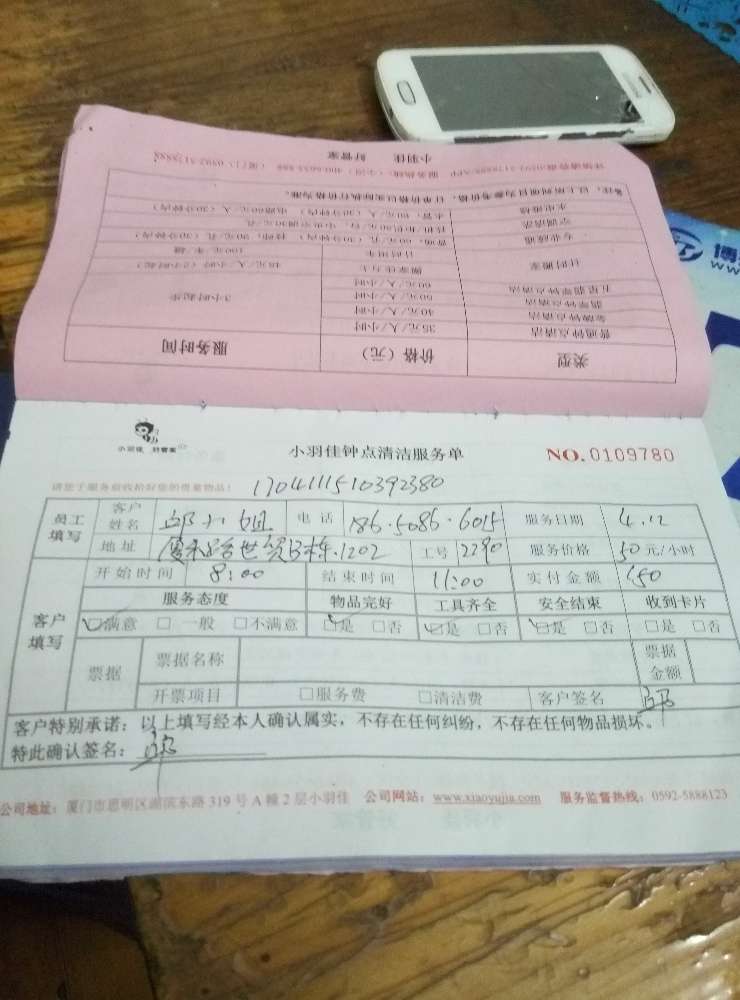 小羽佳 好管家
类型 价格（元） 服务时间
普通钟点清洁 35元/人/小时 3小时起步
金牌钟点清洁 40元/人/小时
翡翠钟点清洁 50元/人/小时
五星翡翠钟点清洁 60元/人/小时
计时搬家 搬家佳力士 48元/人/小时（2小时起）
计时用车 100元/车/趟
专业疏通
空调清洗
水电维修
备注：以上两项目为参考价格，订单价格以实际执行价格为准。
小羽佳 好管家
小羽佳钟点清洁服务单
NO.0109780
请您于服务前收拾好您的贵重物品！
1704111510392380
员工填写 客户姓名 邱小姐 电话 186.5086.6015 服务日期 4.12
地址 1202 工号 2290 服务价格 50元/小时
客户填写 开始时间 8:00 结束时间 11:00 实付金额 150
服务态度 物品完好 工具齐全 安全结束 收到卡片
☑满意 □一般 □不满意 ☑是 □否 ☑是 □否 ☑是 □否 □是 □否
票据 票据名称 票据金额
开票项目 □服务费 □清洁费 客户签名 邱
客户特别承诺：以上填写经本人确认属实，不存在任何纠纷，不存在任何物品损坏。
特此确认签名：邱
公司地址：厦门市思明区湖滨东路319号A幢2层小羽佳 公司网站：www.xiaoyujia.com 服务监督热线：0592-5888123